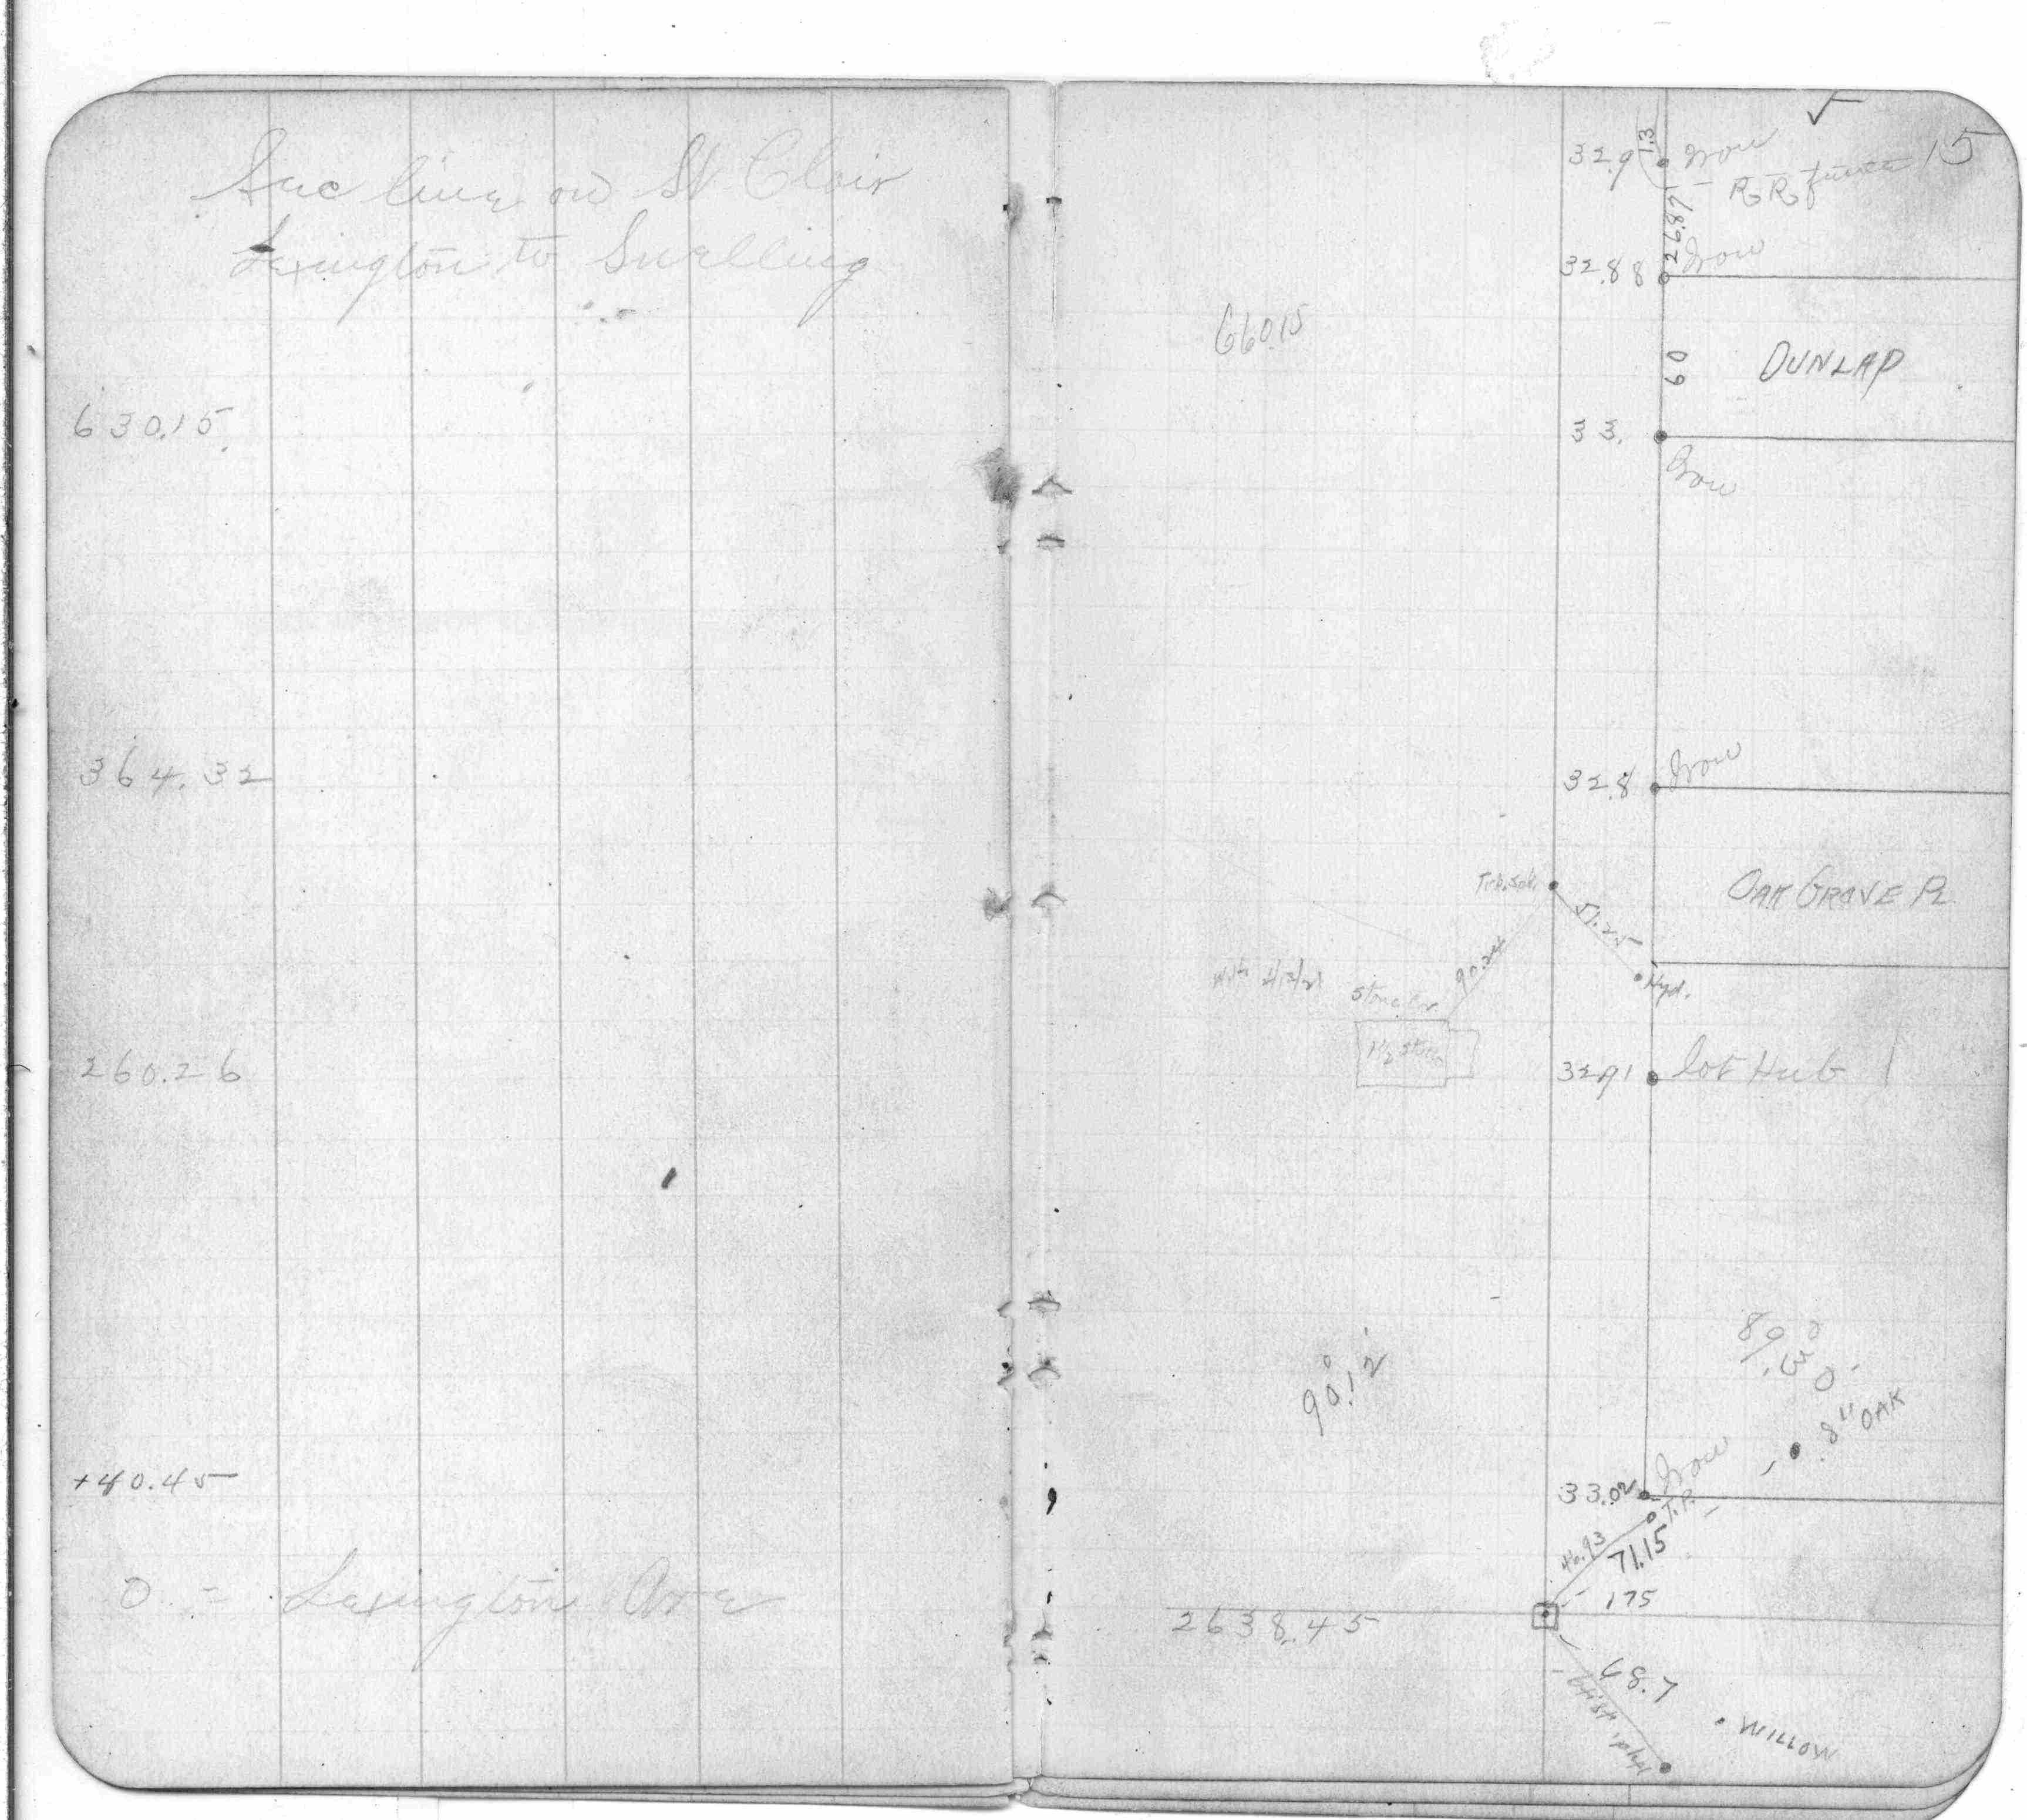 Sec line on St Clair
Lexington to Snelling
630.15
364.32
260.26
+40.45
0 = Lexington Ave
15
32.9
1.3
Iron
R.R. fence
26.87
32.88
Iron
660.15
60
DUNLAP
33.
Iron
32.8
Iron
OAK GROVE PL
51.25
90.24
Hyd.
Stone
1½ Story
32.91
lot Hub
90.12
8" OAK
33.02
Iron
T.P.
46.93
71.15
175
2638.45
68.7
Hyd.
WILLOW